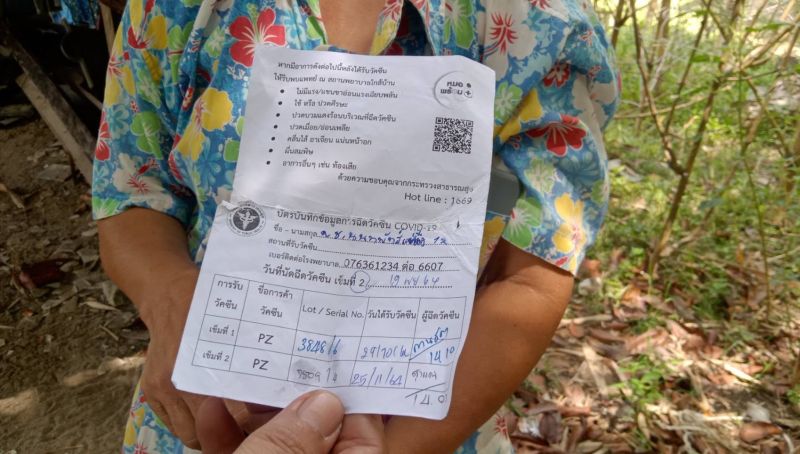 หากมีอาการดังต่อไปนี้หลังได้รับวัคซีน
ให้รีบพบแพทย์ ณ สถานพยาบาลใกล้บ้าน
หมอ
พร้อม
• ไม่มีแรง/แขนขาอ่อนแรงเฉียบพลัน
• ไข้ หรือ ปวดศีรษะ
• ปวดบวมแดงร้อนบริเวณที่ฉีดวัคซีน
• ปวดเมื่อย/อ่อนเพลีย
• คลื่นไส้ อาเจียน แน่นหน้าอก
• ผื่นลมพิษ
• อาการอื่นๆ เช่น ท้องเสีย
ด้วยความขอบคุณจากกระทรวงสาธารณสุข
Hot line : 1669
บัตรบันทึกข้อมูลการฉีดวัคซีน COVID-19
ชื่อ - นามสกุล
สถานที่รับวัคซีน
เบอร์ติดต่อโรงพยาบาล 076361234 ต่อ 6607
วันที่นัดฉีดวัคซีน เข็มที่ 2 19 พย 64
การรับวัคซีน ชื่อการค้าวัคซีน Lot / Serial No. วันได้รับวัคซีน ผู้ฉีดวัคซีน
เข็มที่ 1 PZ 14.10
เข็มที่ 2 PZ 25/11/64